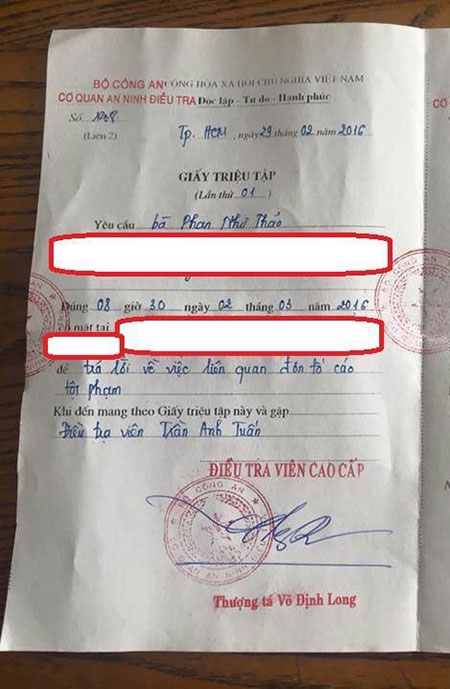 BỘ CÔNG AN CỘNG HÒA XÃ HỘI CHỦ NGHĨA VIỆT NAM
CƠ QUAN AN NINH ĐIỀU TRA Độc lập - Tự do - Hạnh phúc
Số
(Liên 2) Tp. HCM, ngày 29 tháng 02 năm 2016
GIẤY TRIỆU TẬP
(Lần thứ 01)
Yêu cầu bà Phan Như Thảo
Đúng 08 giờ 30 ngày 02 tháng 03 năm 2016
có mặt tại
để trả lời về việc liên quan đơn tố cáo
tội phạm
Khi đến mang theo Giấy triệu tập này và gặp
Điều tra viên Trần Anh Tuấn
ĐIỀU TRA VIÊN CAO CẤP
BỘ CÔNG AN
AN NINH
Thượng tá Võ Định Long